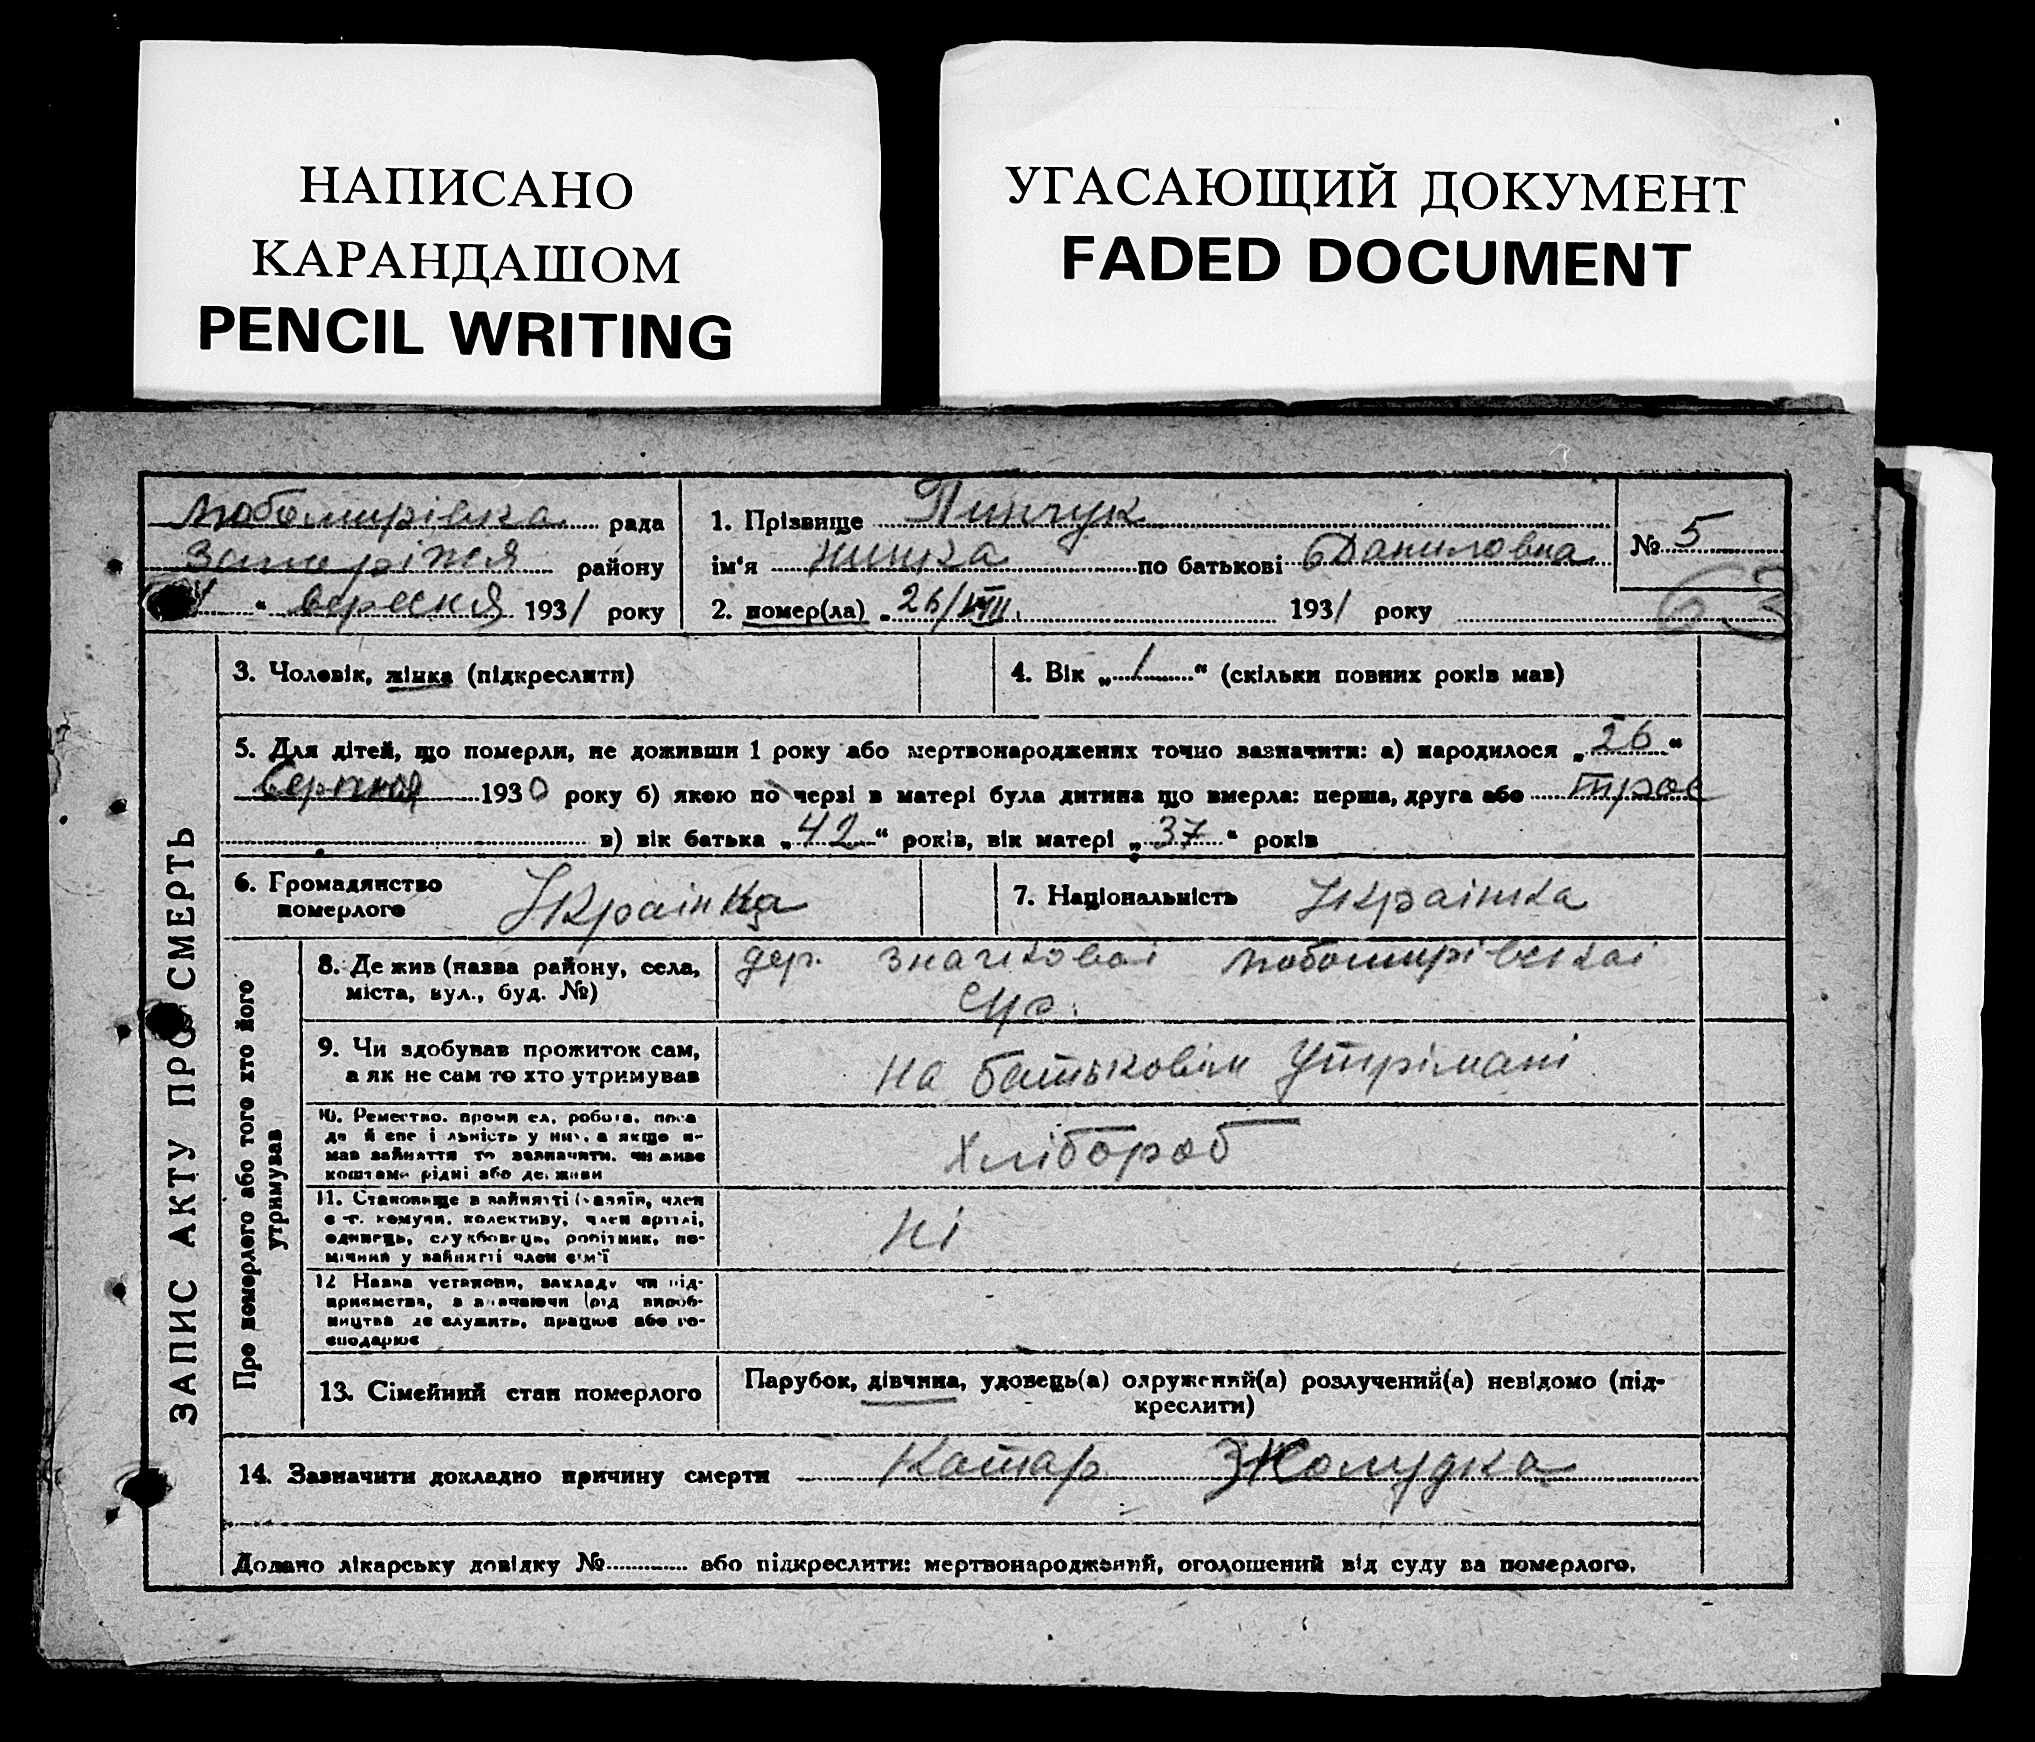 НАПИСАНО
КАРАНДАШОМ
PENCIL WRITING
УГАСАЮЩИЙ ДОКУМЕНТ
FADED DOCUMENT
Любомирівка рада
району
" вересня 1931 року
1. Прізвище Пинчук
ім'я Нинка по батькові Даниловна
2. помер(ла) „26/VIII 1931 року
№ 5
63
ЗАПИС АКТУ ПРО СМЕРТЬ
3. Чоловік, жінка (підкреслити)
4. Вік „1" (скільки повних років мав)
5. Для дітей, що померли, не доживши 1 року або мертвонароджених точно зазначити: а) народилося „26"
Серпня 1930 року б) якою по черзі в матері була дитина що вмерла: перша, друга або троє
в) вік батька „42" років, вік матері „37" років
6. Громадянство
померлого
Українка
7. Національність Українка
Про померлого або того хто його
утримував
8. Де жив (назва району, села,
міста, вул., буд. №)
дер. Значкової Любомирівської
9. Чи здобував прожиток сам,
а як не сам то хто утримував
на батьковім Утрімані
10. Ремество, промисел, робота, поса
да й спеціяльність у них, а якщо н-
мав зайняття то зазначити, чи живе
коштами рідні або держави
Хлібороб
11. Становище в зайнятті (хазяїн, член
с-г. комуни, колективу, член артілі,
одинець, службовець, робітник, по-
мічний у зайнятті член сім'ї
Ні
12 Назва установи, закладу чи під-
приємства, зазначаючи рід вироб-
ництва де служить, працює або го-
сподарює
13. Сімейний стан померлого
Парубок, дівчина, удовець(а) одружений(а) розлучений(а) невідомо (під-
креслити)
14. Зазначити докладно причину смерти Катар Жолудка
Додано лікарську довідку № або підкреслити: мертвонароджений, оголошений від суду за померлого.